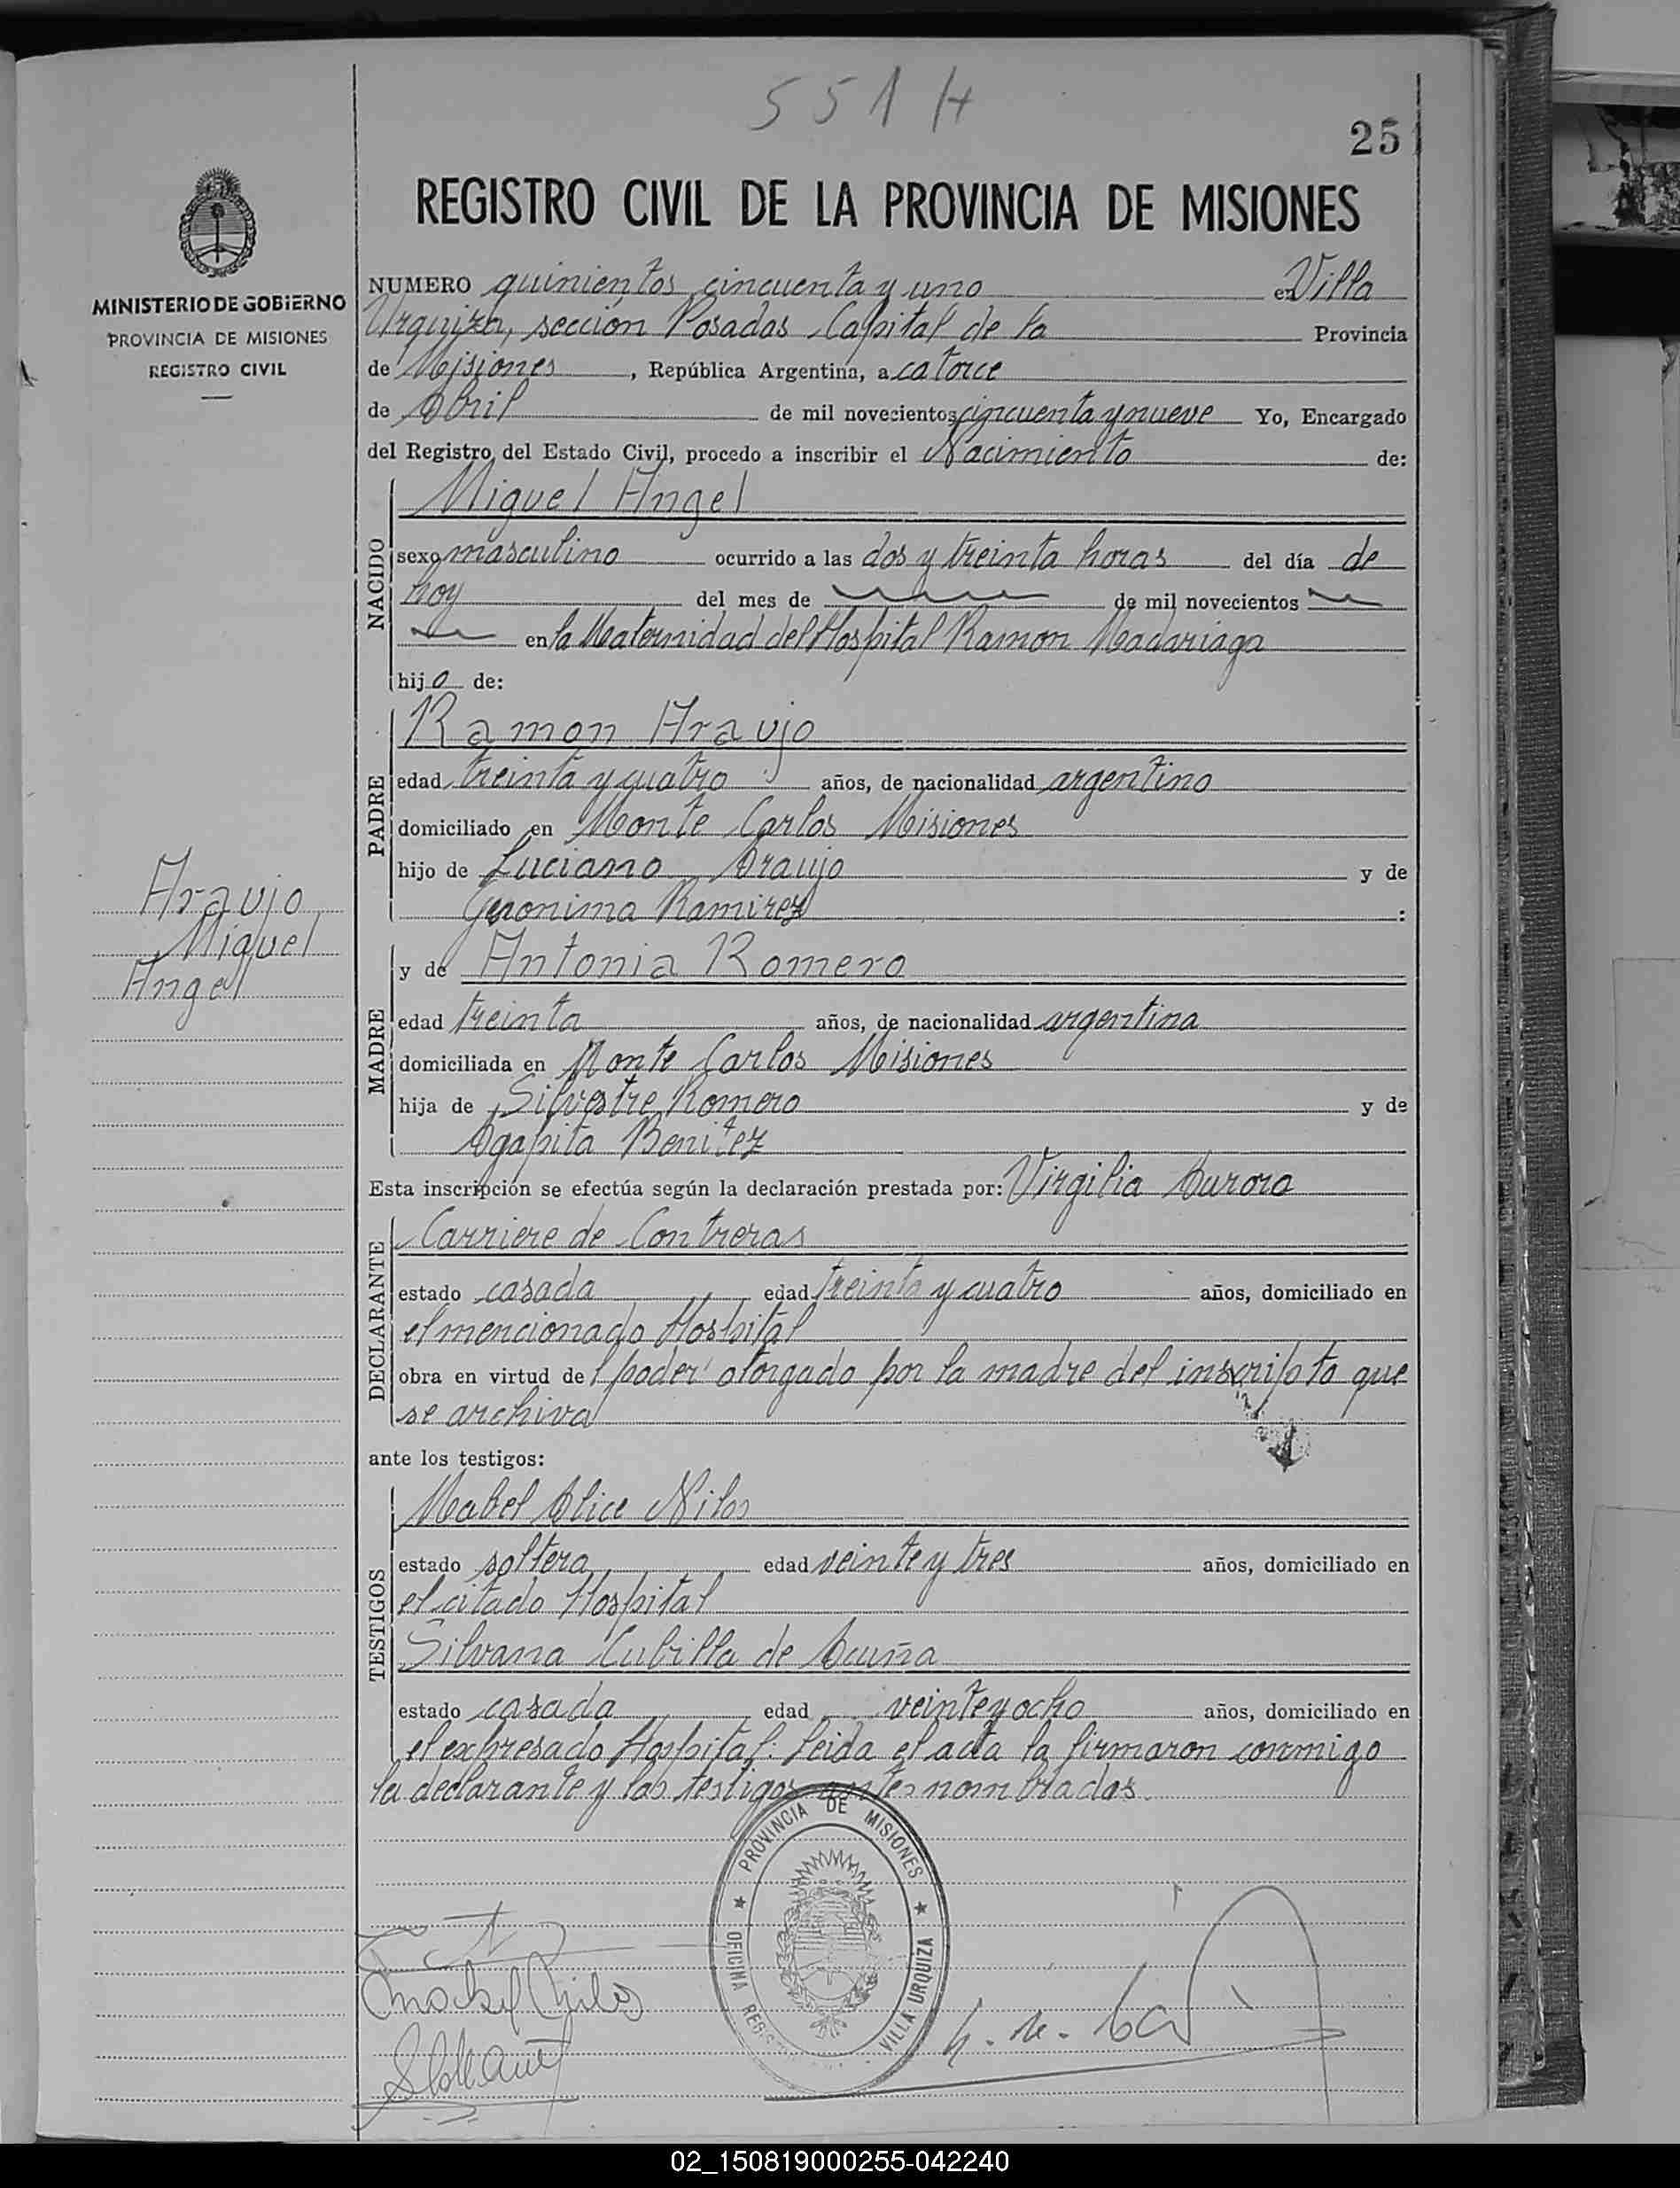 551 H
25
REGISTRO CIVIL DE LA PROVINCIA DE MISIONES
MINISTERIO DE GOBIERNO
PROVINCIA DE MISIONES
REGISTRO CIVIL
NUMERO quinientos cincuenta y uno en Villa
Urquiza, sección Posadas Capital de la Provincia
de Misiones, República Argentina, a catorce
de Abril de mil novecientos cincuenta y nueve Yo, Encargado
del Registro del Estado Civil, procedo a inscribir el Nacimiento de:
NACIDO
Miguel Angel
sexo masculino ocurrido a las dos y treinta horas del día de
hoy del mes de de mil novecientos
en la Maternidad del Hospital Ramon Madariaga
hijo de:
PADRE
Ramon Araujo
edad treinta y cuatro años, de nacionalidad argentino
domiciliado en Monte Carlos Misiones
hijo de Luciano Araujo y de
Geronima Ramirez :
Araujo
Miguel
Angel
MADRE
y de Antonia Romero
edad treinta años, de nacionalidad argentina
domiciliada en Monte Carlos Misiones
hija de Silvestre Romero y de
Agapita Benitez
Esta inscripción se efectúa según la declaración prestada por: Virgilia Aurora
DECLARANTE
Carriere de Contreras
estado casada edad treinta y cuatro años, domiciliado en
el mencionado Hospital
obra en virtud del poder otorgado por la madre del inscripto que
se archiva
ante los testigos:
TESTIGOS
Mabel Alice Nilos
estado soltera edad veinte y tres años, domiciliado en
el citado Hospital
Silvana Cubilla de Acuña
estado casada edad veinte y ocho años, domiciliado en
el expresado Hospital: leida el acta la firmaron conmigo
la declarante y las testigos antes nombradas.
PROVINCIA DE MISIONES
OFICINA VILLA URQUIZA
02_150819000255-042240